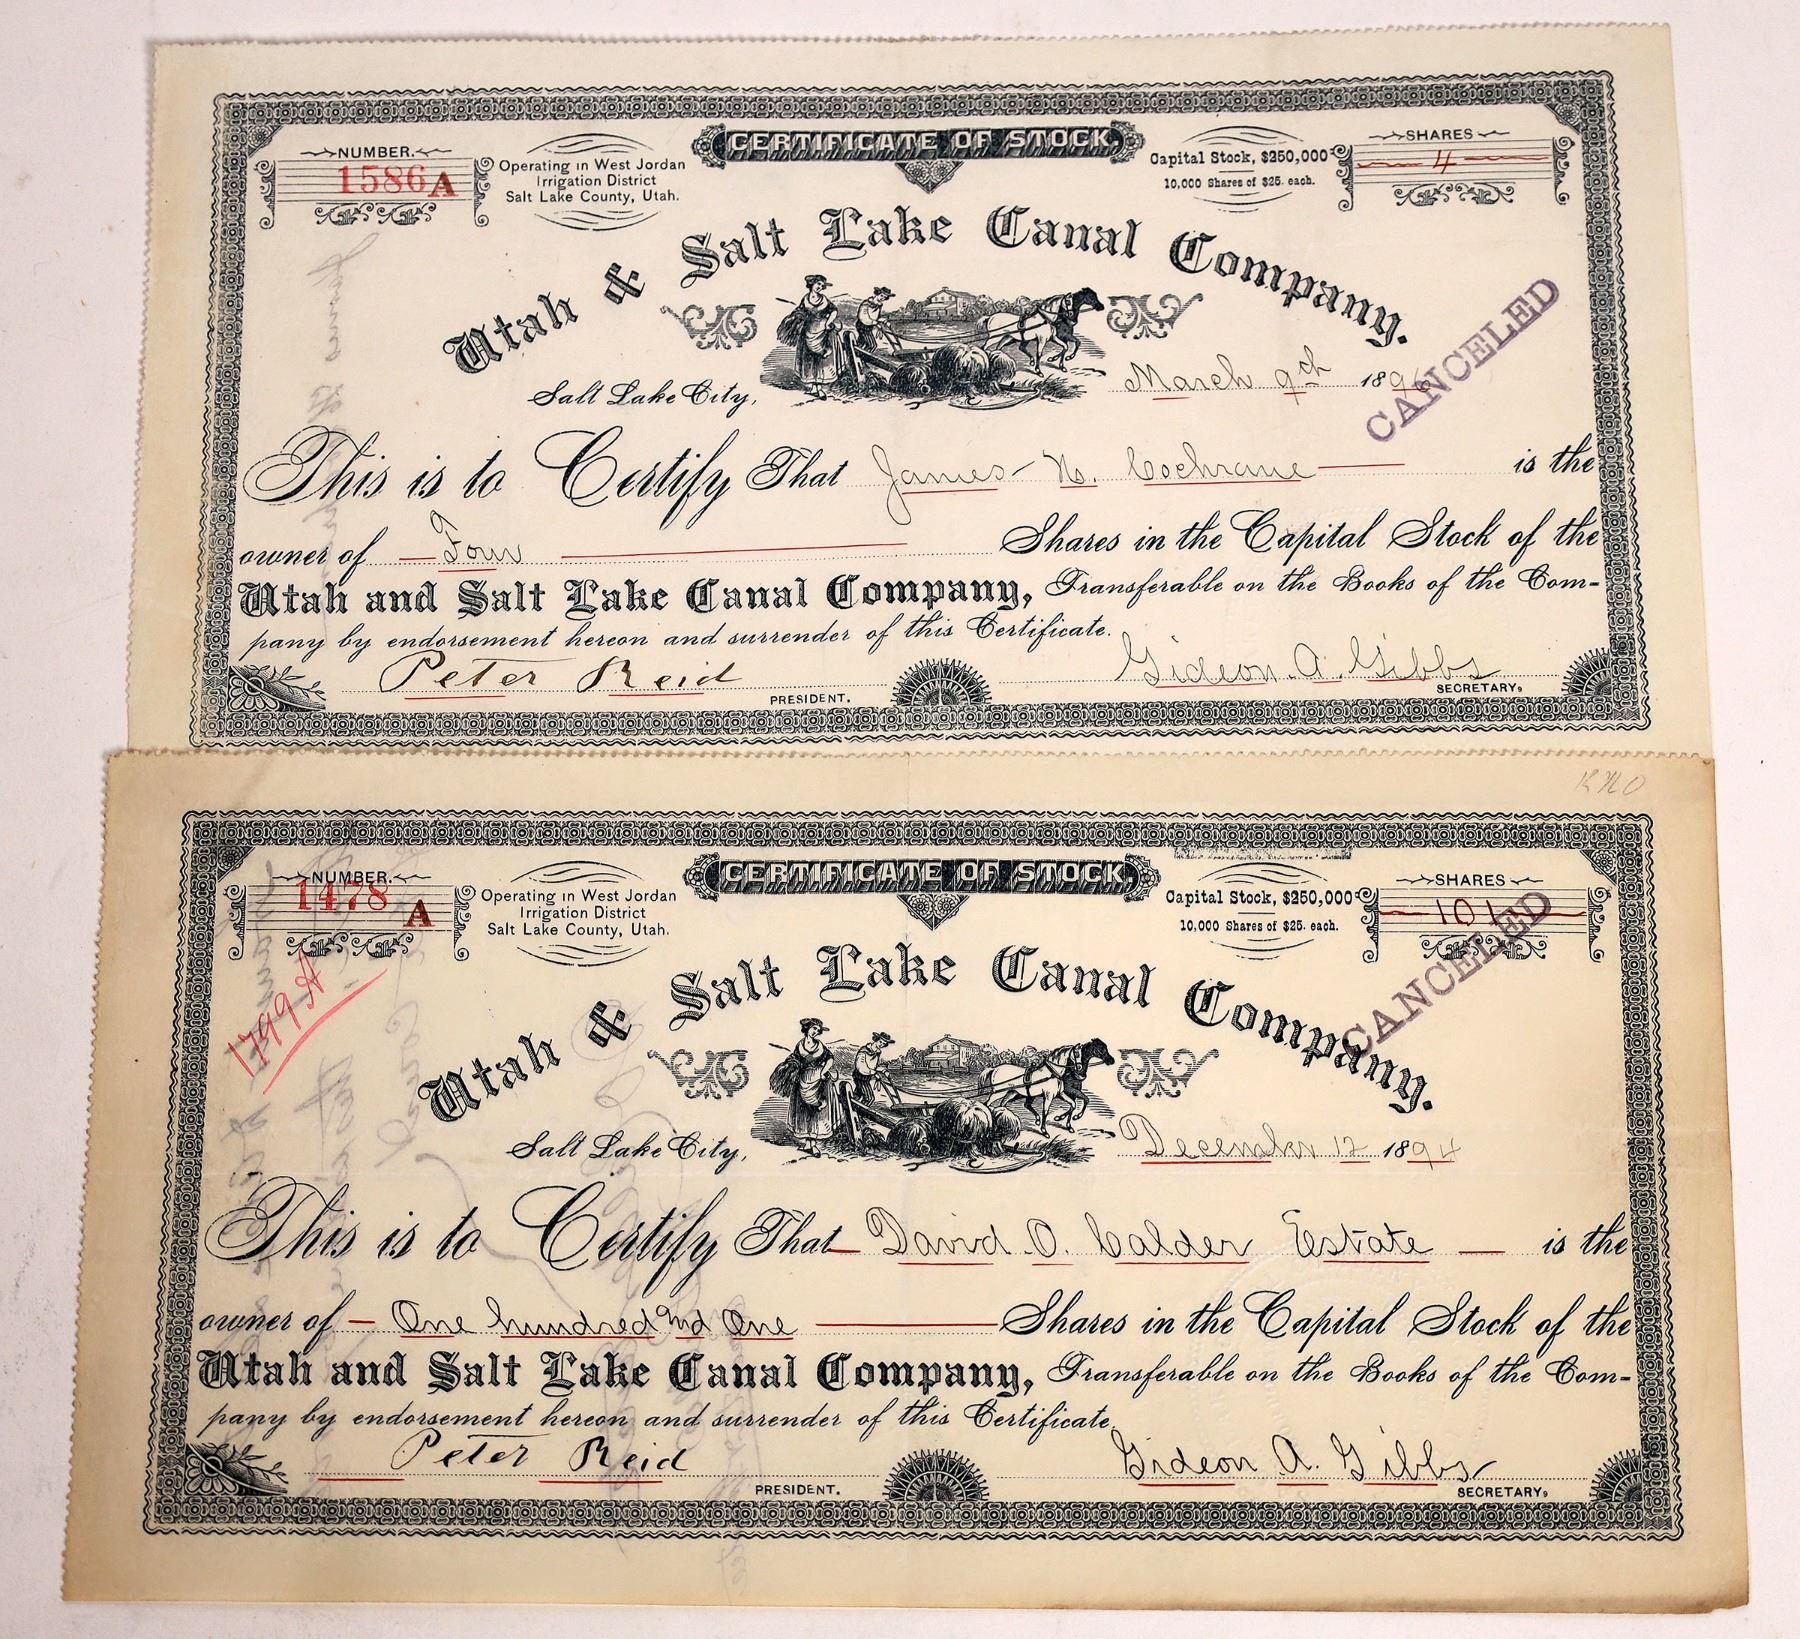 CERTIFICATE OF STOCK.
NUMBER.
1586 A
Operating in West Jordan
Irrigation District
Salt Lake County, Utah.
Capital Stock, $250,000
10,000 Shares of $25. each.
SHARES
4
Utah & Salt Lake Canal Company.
CANCELED
Salt Lake City, March 9th 1896
This is to Certify That James N. Cochrane is the
owner of Four Shares in the Capital Stock of the
Utah and Salt Lake Canal Company, Transferable on the Books of the Com-
pany by endorsement hereon and surrender of this Certificate.
Peter Reid PRESIDENT.
Gideon A. Gibbs SECRETARY,
CERTIFICATE OF STOCK.
NUMBER.
1478 A
1799 A
Operating in West Jordan
Irrigation District
Salt Lake County, Utah.
Capital Stock, $250,000
10,000 Shares of $25. each.
SHARES
101
CANCELED
Utah & Salt Lake Canal Company.
Salt Lake City, December 12 1894
This is to Certify That David O. Calder Estate is the
owner of One hundred and One Shares in the Capital Stock of the
Utah and Salt Lake Canal Company, Transferable on the Books of the Com-
pany by endorsement hereon and surrender of this Certificate.
Peter Reid PRESIDENT.
Gideon A. Gibbs SECRETARY,